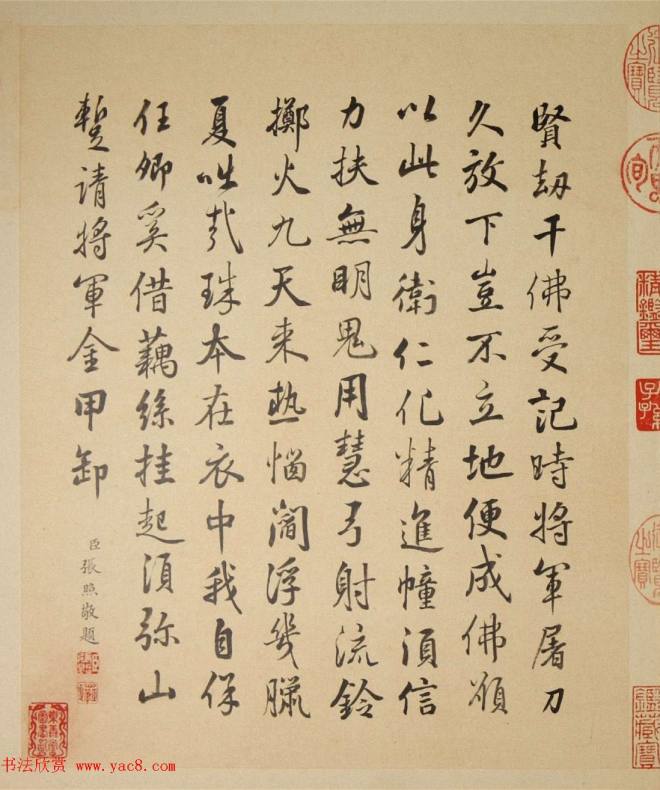 賢劫千佛受記時將軍屠刀
久放下豈不立地便成佛願
以此身衛仁化精進幢須信
力扶無明鬼用慧弓射流鈴
擲火九天來熱惱閻浮幾臘
夏咄哉珠本在衣中我自保
任卿奚借藕絲挂起須弥山
蹔請將軍金甲卸
臣張照敬題
书法欣赏 www.yac8.com